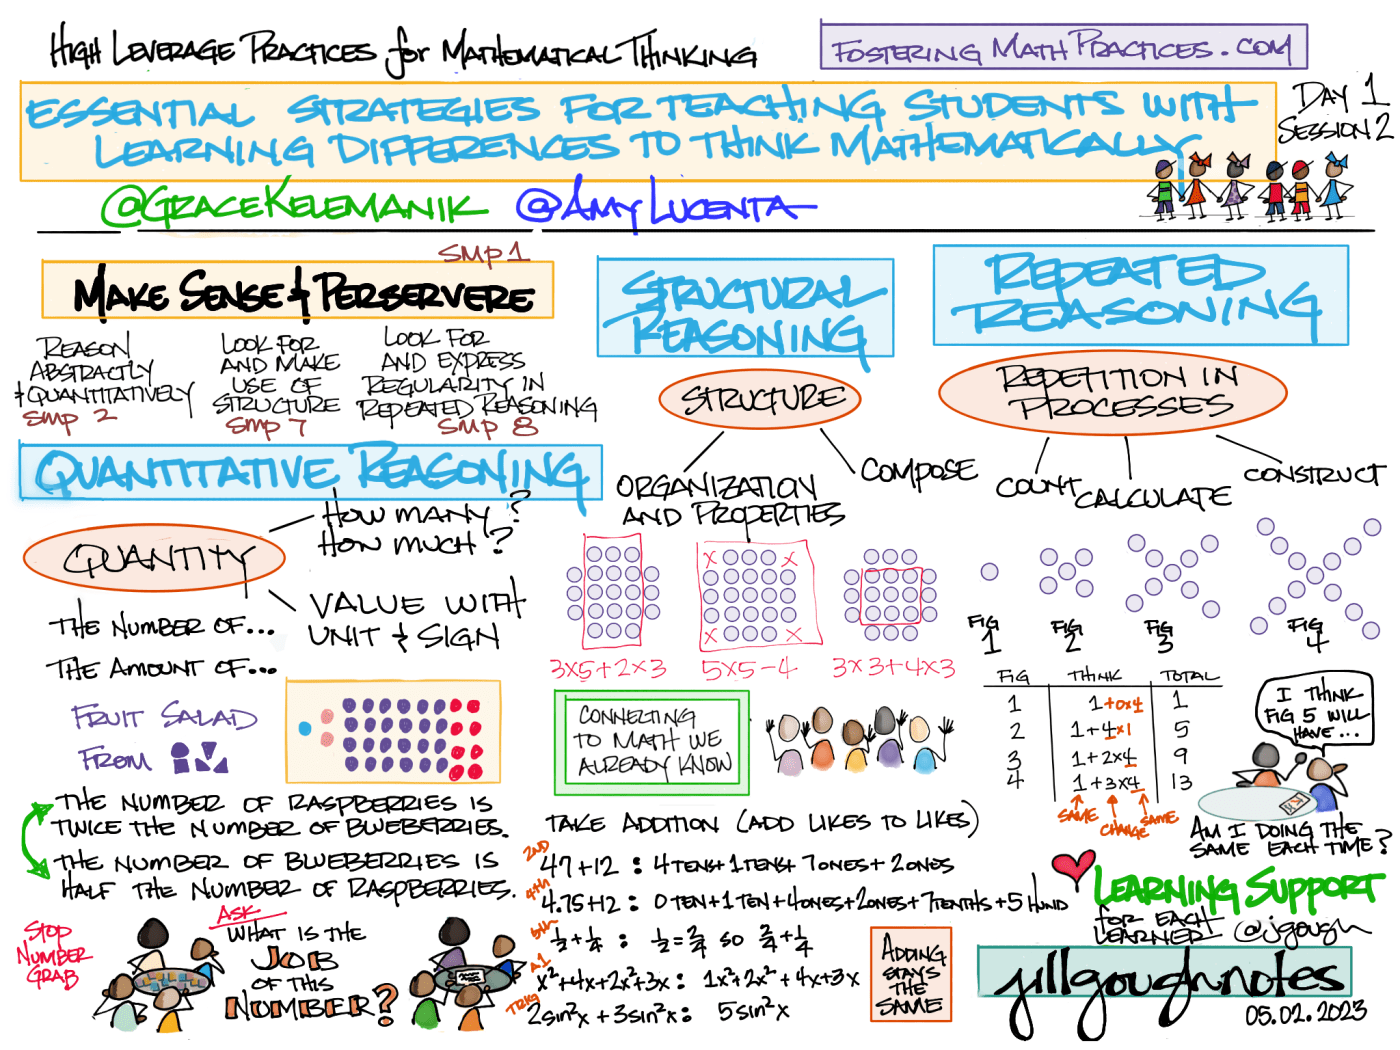 High Leverage Practices for Mathematical Thinking
FosteringMathPractices.com
Essential Strategies for Teaching Students with
Learning Differences to Think Mathematically
Day 1
Session 2
@GraceKelemanik @AmyLucenta
SMP 1
Make Sense & Perservere
Reason
Abstractly
+ Quantitatively
SMP 2
Look for
and make
use of
structure
SMP 7
Look for
and express
regularity in
repeated reasoning
SMP 8
Quantitative Reasoning
Quantity
How many?
How much?
Value with
unit & sign
The number of...
The amount of...
Fruit Salad
From
The number of raspberries is
twice the number of blueberries.
The number of blueberries is
half the number of raspberries.
Stop
Number
Grab
Ask
What is the
Job
of this
Number?
Structural
Reasoning
Structure
Organization
and Properties
Compose
3x5+2x3
5x5-4
3x3+4x3
Connecting
to math we
already know
Take addition (add likes to likes)
2nd
47+12 : 4 tens + 1 tens + 7 ones + 2 ones
4th
4.75+12 : 0 ten + 1 ten + 4 ones + 2 ones + 7 tenths + 5 hund
5th
1/2 + 1/4 : 1/2 = 2/4 so 2/4 + 1/4
A1
x²+4x+2x²+3x : 1x²+2x² + 4x+3x
Trig
2sin²x + 3sin²x : 5sin²x
Adding
stays
the
same
Repeated
Reasoning
Repetition in
processes
Count
Calculate
Construct
Fig
1
Fig
2
Fig
3
Fig
4
Fig Think Total
1 1+0x4 1
2 1+4x1 5
3 1+2x4 9
4 1+3x4 13
same change same
I think
Fig 5 will
have...
Am I doing the
same each time?
Learning Support
for each
learner @jgough
jillgoughnotes
05.02.2023